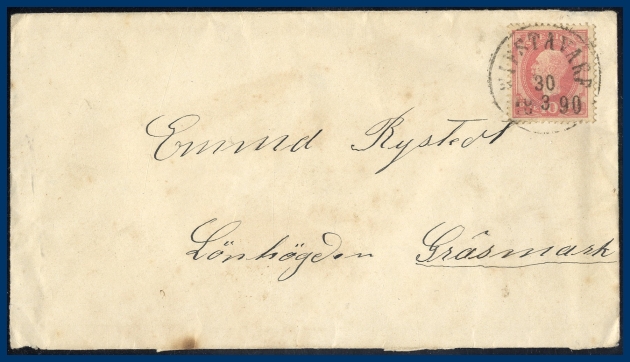 30
3 90
Emund Rystedt
Lönhögden Gräsmark